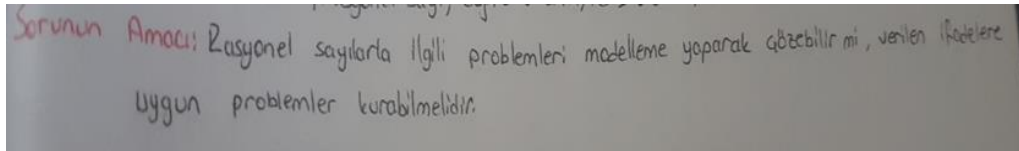 Sorunun Amacı: Rasyonel sayılarla ilgili problemleri modelleme yaparak çözebilir mi, verilen ifadelere
uygun problemler kurabilmelidir.